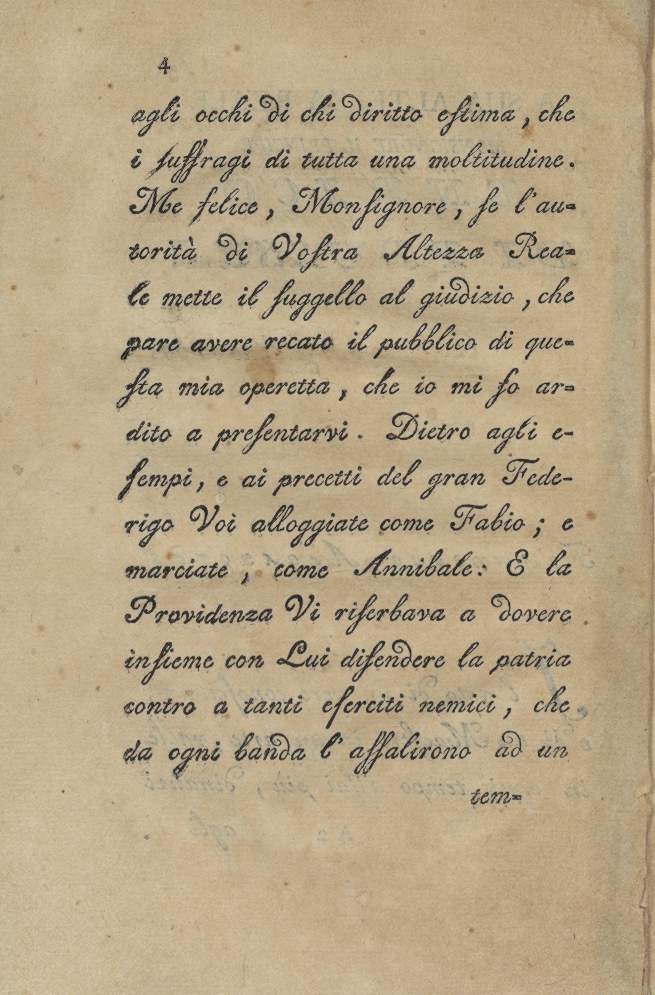 4
agli occhi di chi diritto eſtima, che
i ſuffragi di tutta una moltitudine.
Me felice, Monſignore, ſe l'au=
torità di Voſtra Altezza Rea=
le mette il ſuggello al giudizio, che
pare avere recato il pubblico di que=
ſta mia operetta, che io mi fo ar=
dito a preſentarvi. Dietro agli e-
ſempi, e ai precetti del gran Fede-
rigo Voi alloggiate come Fabio; e
marciate, come Annibale: E la
Providenza Vi riſerbava a dovere
inſieme con Lui difendere la patria
contro a tanti eſerciti nemici, che
da ogni banda l'aſſalirono ad un
tem=